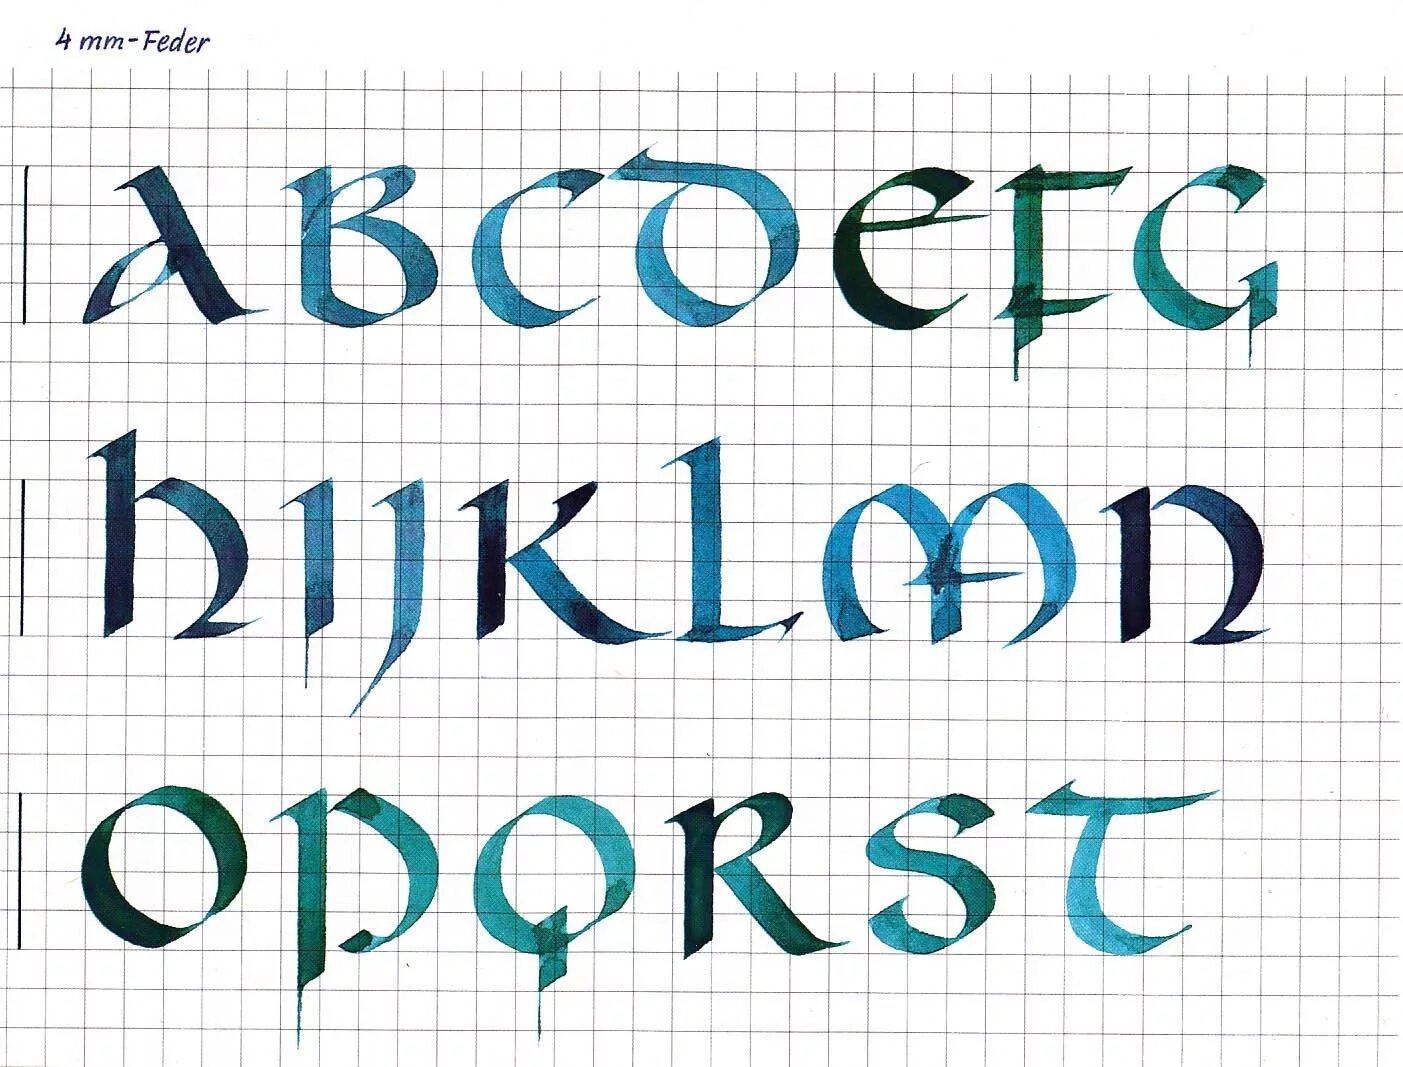 4 mm-Feder
A B C D E F G
h I J K L M N
O P Q R S T